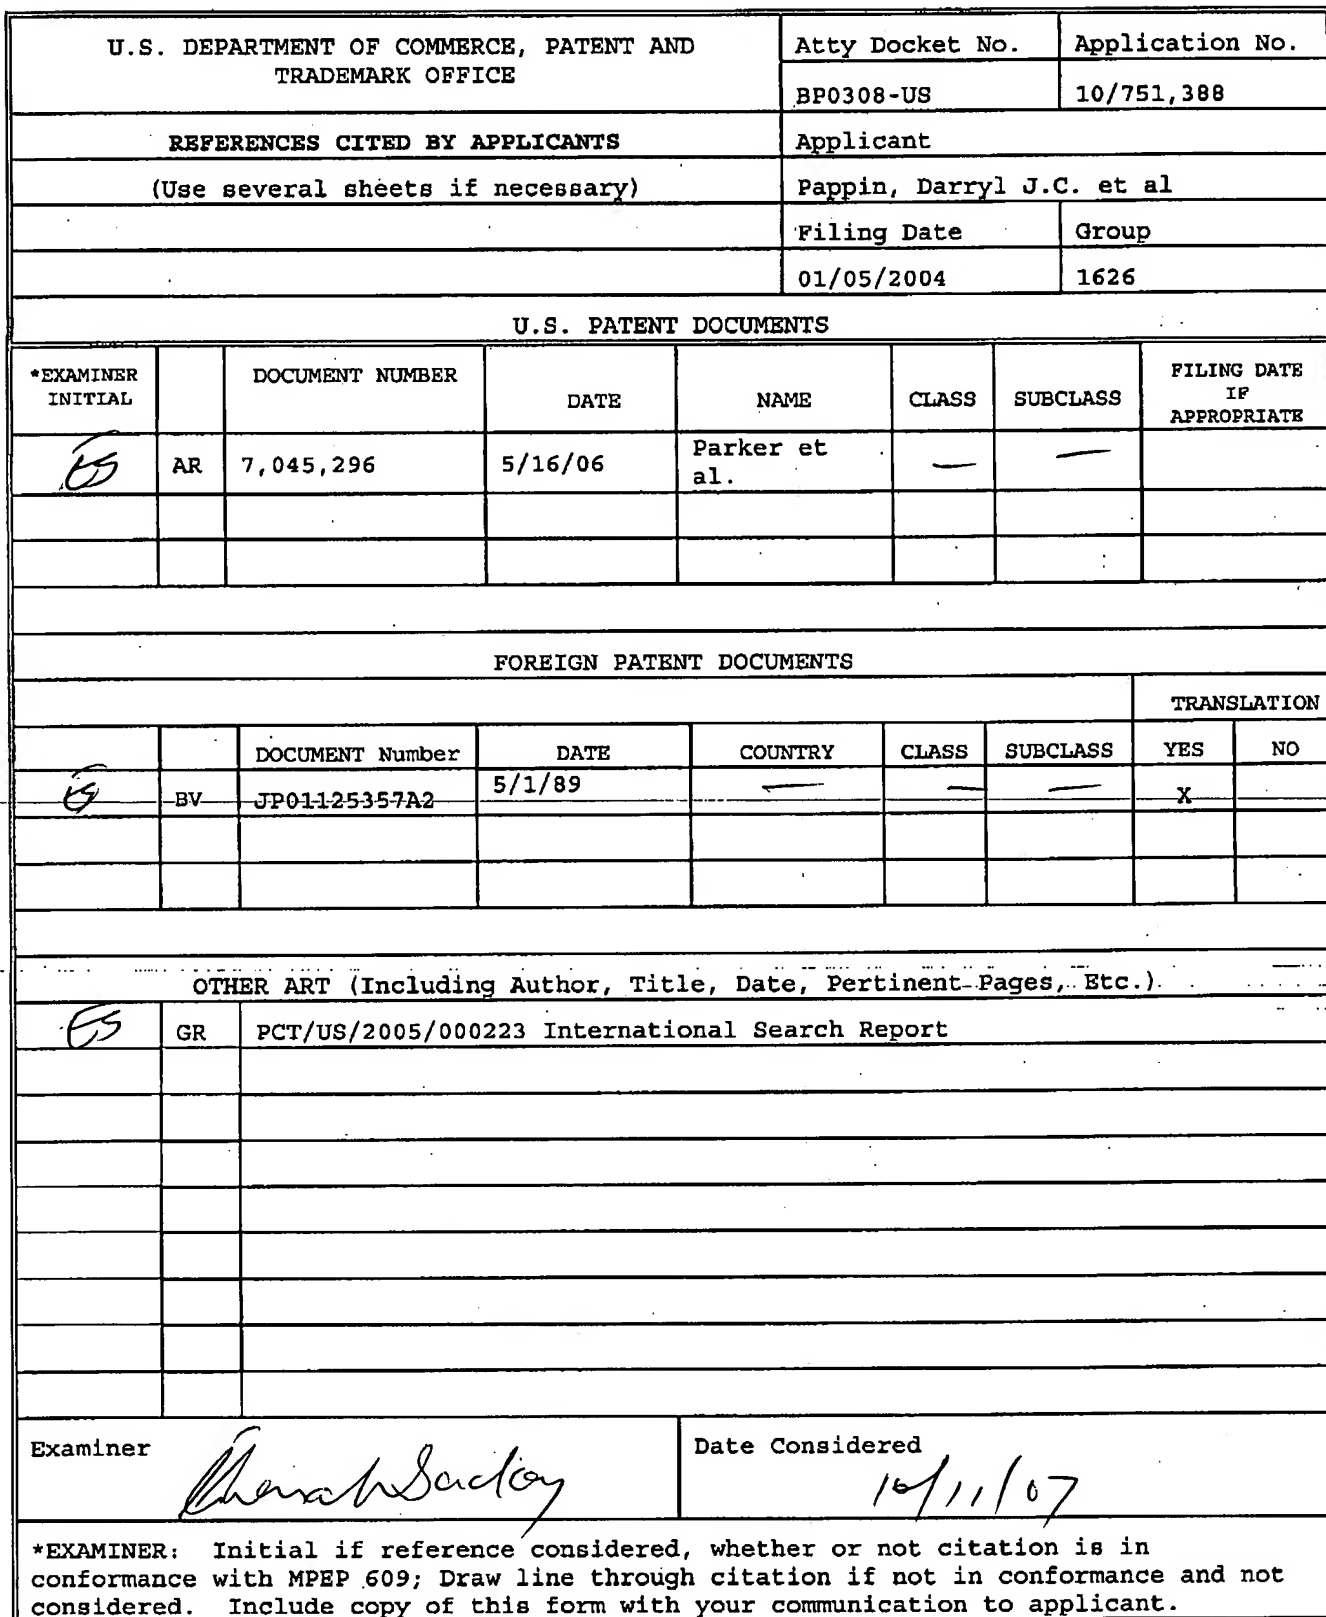 U.S. DEPARTMENT OF COMMERCE, PATENT AND
TRADEMARK OFFICE
Atty Docket No.
Application No.
BP0308-US
10/751,388
REFERENCES CITED BY APPLICANTS
Applicant
(Use several sheets if necessary)
Pappin, Darryl J.C. et al
Filing Date
Group
01/05/2004
1626
U.S. PATENT DOCUMENTS
*EXAMINER
INITIAL
DOCUMENT NUMBER
DATE
NAME
CLASS
SUBCLASS
FILING DATE
IF
APPROPRIATE
ES
AR
7,045,296
5/16/06
Parker et
al.
—
—
FOREIGN PATENT DOCUMENTS
TRANSLATION
DOCUMENT Number
DATE
COUNTRY
CLASS
SUBCLASS
YES
NO
ES
BV
JP01125357A2
5/1/89
—
—
—
X
OTHER ART (Including Author, Title, Date, Pertinent Pages, Etc.)
ES
GR
PCT/US/2005/000223 International Search Report
Examiner
Date Considered
10/11/07
*EXAMINER: Initial if reference considered, whether or not citation is in
conformance with MPEP 609; Draw line through citation if not in conformance and not
considered. Include copy of this form with your communication to applicant.